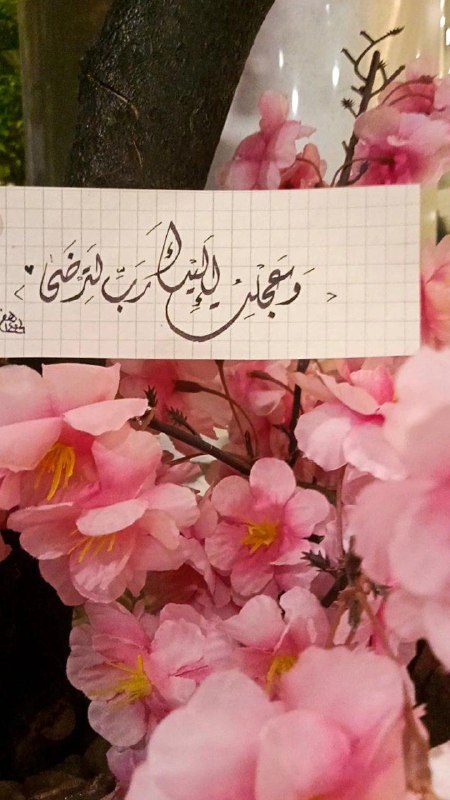 وَعَجِلْتُ إِلَيْكَ رَبِّ لِتَرْضَىٰ